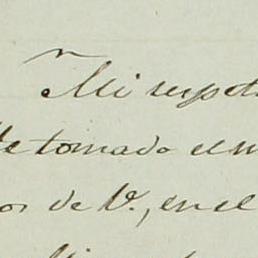 Mi respet
He tomado el m
os de V., en el